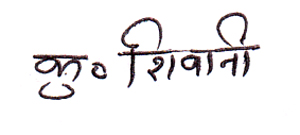 कु० शिवानी